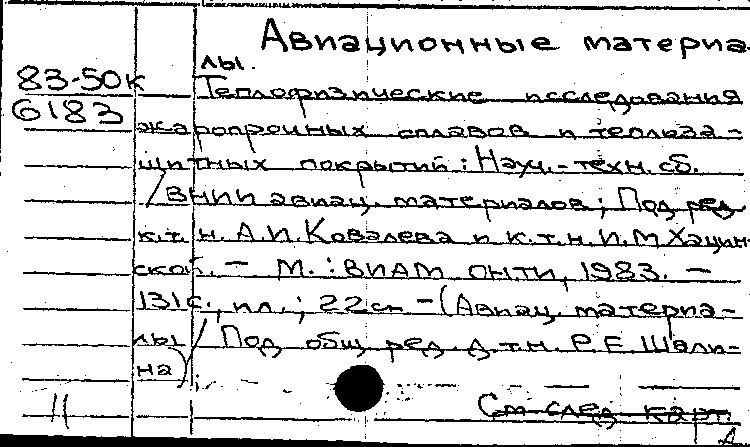 Авиационные материа
лы.
83-50к
Теплофизические исследования
6183
жаропрочных сплавов и теплоза-
щитных покрытий: Науч.-техн. сб.
/ВНИИ авиац. материалов; Под ред
к.т.н. А.И. Ковалева и к.т.н. И.М Хацин-
ской. — М.: ВИАМ ОНТИ, 1983. —
131с., ил.; 22см — (Авиац. материа-
лы / Под общ. ред. д.т.н. Р.Е. Шали-
на)
См след карт
11